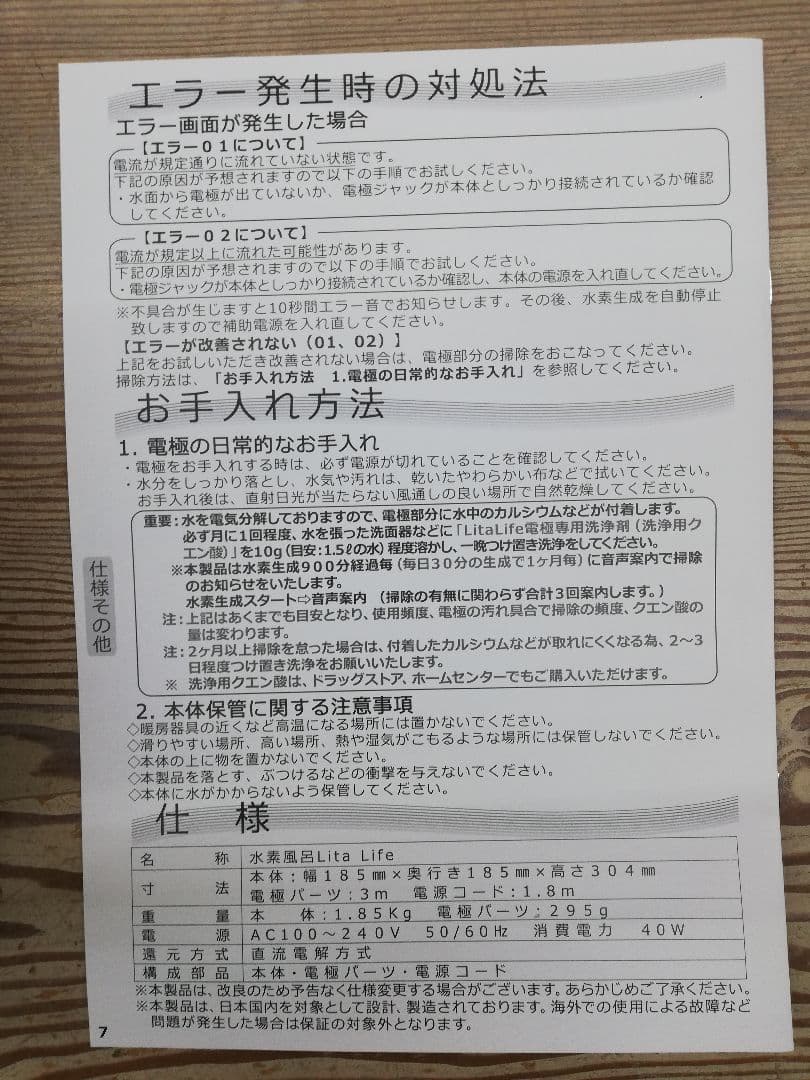 エラー発生時の対処法
エラー画面が発生した場合
【エラー01について】
電流が規定通りに流れていない状態です。
下記の原因が予想されますので以下の手順でお試しください。
・水面から電極が出ていないか、電極ジャックが本体としっかり接続されているか確認
してください。
【エラー02について】
電流が規定以上に流れた可能性があります。
下記の原因が予想されますので以下の手順でお試しください。
・電極ジャックが本体としっかり接続されているか確認し、本体の電源を入れ直してください。
※不具合が生じますと10秒間エラー音でお知らせします。その後、水素生成を自動停止
致しますので補助電源を入れ直してください。
【エラーが改善されない（01、02）】
上記をお試しいただき改善されない場合は、電極部分の掃除をおこなってください。
掃除方法は、「お手入れ方法　1.電極の日常的なお手入れ」を参照してください。
お手入れ方法
1. 電極の日常的なお手入れ
・電極をお手入れする時は、必ず電源が切れていることを確認してください。
・水分をしっかり落とし、水気や汚れは、乾いたやわらかい布などで拭いてください。
お手入れ後は、直射日光が当たらない風通しの良い場所で自然乾燥してください。
重要：水を電気分解しておりますので、電極部分に水中のカルシウムなどが付着します。
必ず月に1回程度、水を張った洗面器などに「LitaLife電極専用洗浄剤（洗浄用ク
エン酸）」を10g（目安：1.5ℓの水）程度溶かし、一晩つけ置き洗浄をしてください。
※本製品は水素生成900分経過毎（毎日30分の生成で1ヶ月毎）に音声案内で掃除
のお知らせをいたします。
水素生成スタート⇨音声案内　（掃除の有無に関わらず合計3回案内します。）
注：上記はあくまでも目安となり、使用頻度、電極の汚れ具合で掃除の頻度、クエン酸の
量は変わります。
注：2ヶ月以上掃除を怠った場合は、付着したカルシウムなどが取れにくくなる為、2～3
日程度つけ置き洗浄をお願いいたします。
※　洗浄用クエン酸は、ドラッグストア、ホームセンターでもご購入いただけます。
仕様その他
2. 本体保管に関する注意事項
◇暖房器具の近くなど高温になる場所には置かないでください。
◇滑りやすい場所、高い場所、熱や湿気がこもるような場所には保管しないでください。
◇本体の上に物を置かないでください。
◇本製品を落とす、ぶつけるなどの衝撃を与えないでください。
◇本体に水がかからないよう保管してください。
仕　様
名　称　水素風呂Lita Life
寸　法　本体：幅185㎜×奥行き185㎜×高さ304㎜
電極パーツ：3m　電源コード：1.8m
重　量　本　体：1.85Kg　電極パーツ：295g
電　源　AC100～240V　50/60㎐　消費電力　40W
還元方式　直流電解方式
構成部品　本体・電極パーツ・電源コード
※本製品は、改良のため予告なく仕様変更する場合がございます。あらかじめご了承ください。
※本製品は、日本国内を対象として設計、製造されております。海外での使用による故障など
問題が発生した場合は保証の対象外となります。
7